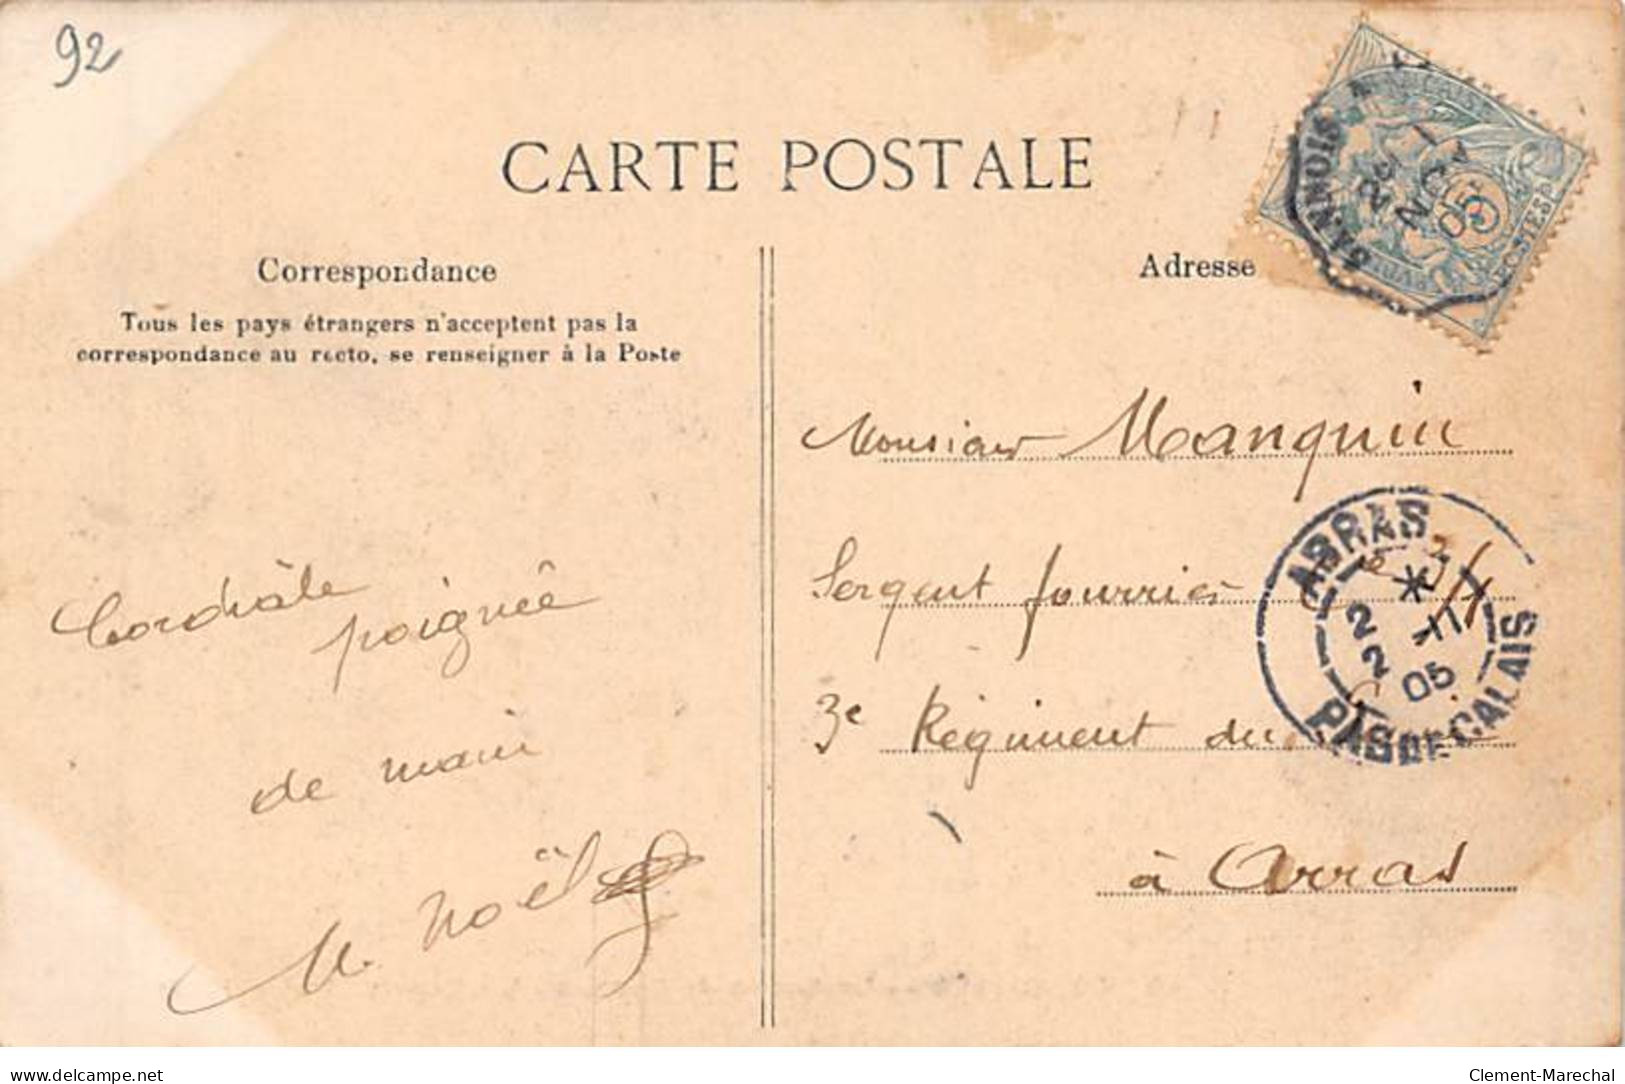 92
CARTE POSTALE
Correspondance
Tous les pays étrangers n'acceptent pas la
correspondance au recto, se renseigner à la Poste
Cordiale
poignée
de main
M. Noël
Adresse
SANNOIS
NOV
05
POSTES
Monsieur Manquin
Sergent fourrier
3e Régiment du
à Arras
ARRAS
2 2 -11 05
PAS DE CALAIS
www.delcampe.net
Clement-Marechal